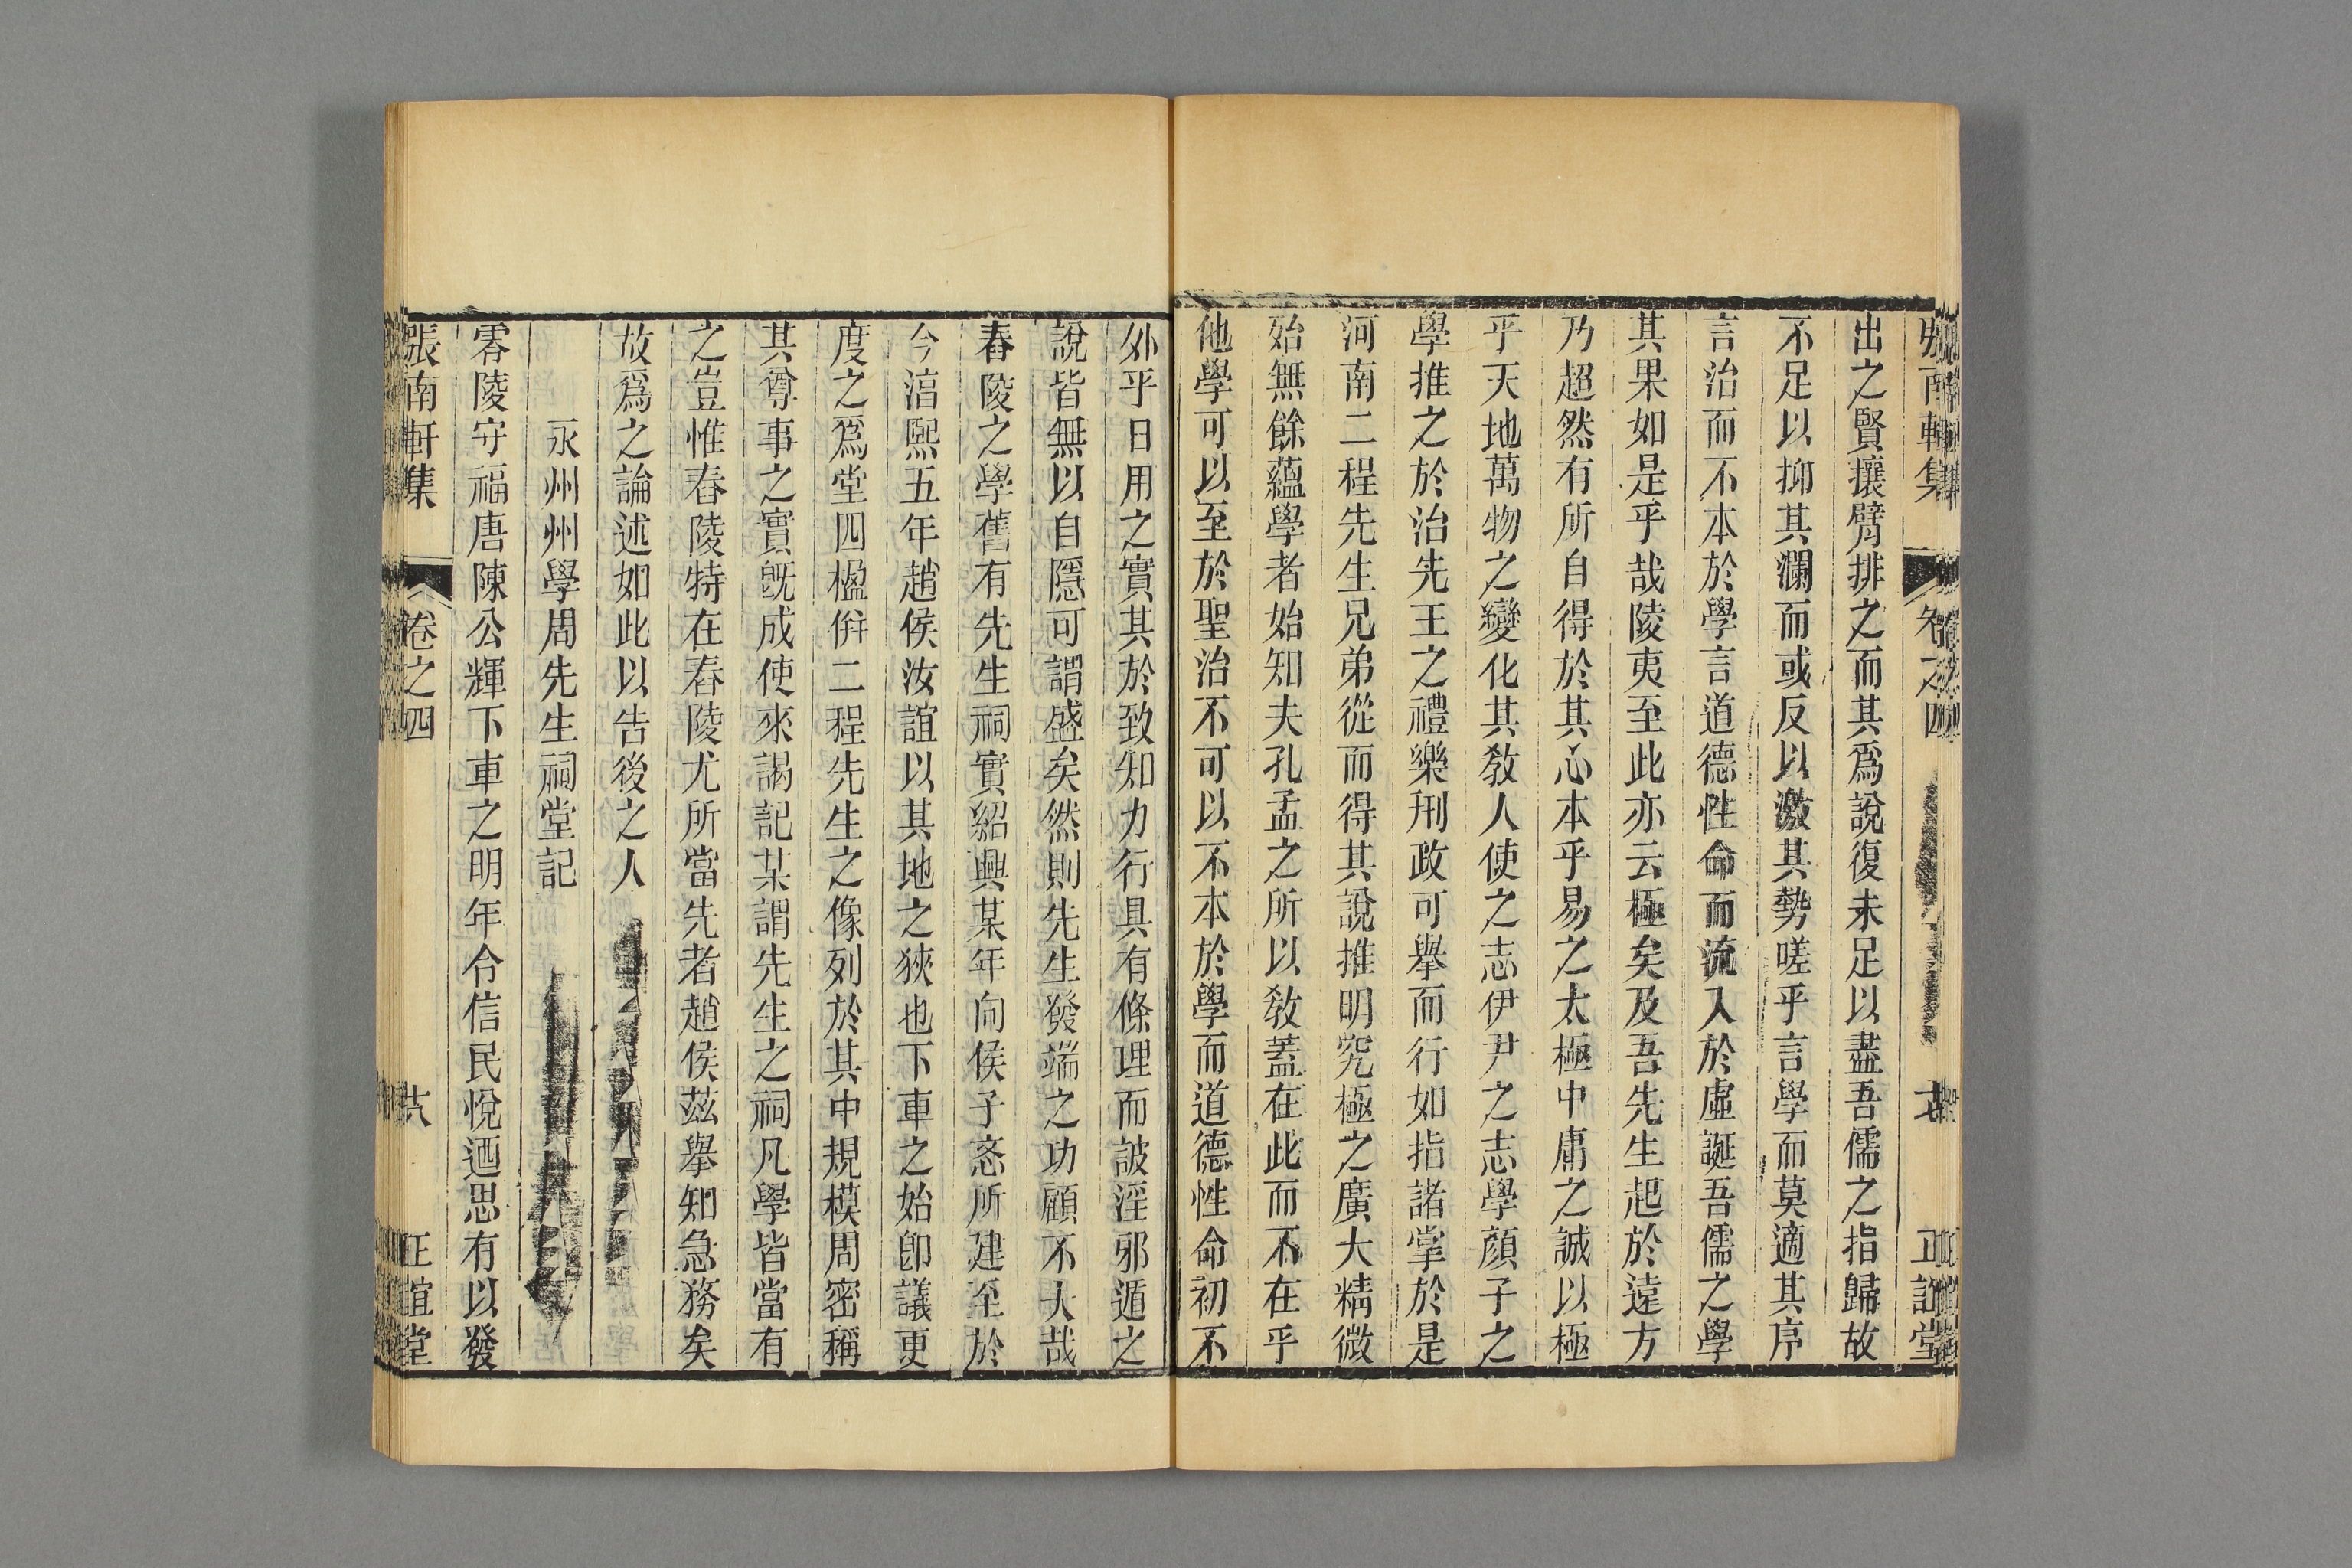 張南軒集 卷之四 正誼堂
出之賢攘臂排之而其爲說復未足以盡吾儒之指歸故
不足以抑其瀾而或反以激其勢嗟乎言學而莫適其序
言治而不本於學言道德性命而流入於虛誕吾儒之學
其果如是乎哉陵夷至此亦云極矣及吾先生起於遠方
乃超然有所自得於其心本乎易之太極中庸之誠以極
乎天地萬物之變化其敎人使之志伊尹之志學顏子之
學推之於治先王之禮樂刑政可舉而行如指諸掌於是
河南二程先生兄弟從而得其說推明究極之廣大精微
始無餘蘊學者始知夫孔孟之所以敎蓋在此而不在乎
他學可以至於聖治不可以不本於學而道德性命初不
外乎日用之實其於致知力行具有條理而詖淫邪遁之
說皆無以自隱可謂盛矣然則先生發端之功顧不大哉
舂陵之學舊有先生祠實紹興某年向侯子忞所建至於
今淳熙五年趙侯汝誼以其地之狹也下車之始卽議更
度之爲堂四楹倂二程先生之像列於其中規模周密稱
其尊事之實旣成使來謁記某謂先生之祠凡學皆當有
之豈惟舂陵特在舂陵尤所當先者趙侯茲擧知急務矣
故爲之論述如此以告後之人
永州州學周先生祠堂記
零陵守福唐陳公輝下車之明年令信民悅迺思有以發
張南軒集 卷之四 六 正誼堂